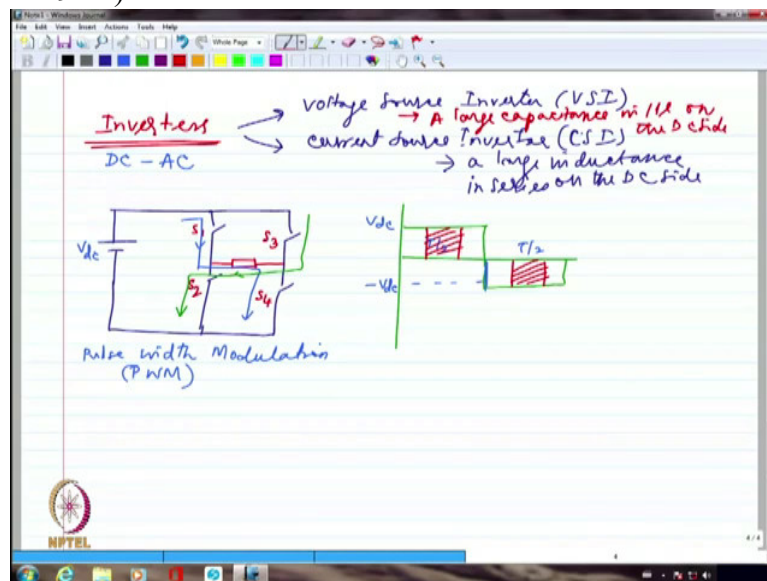 Note1 - Windows Journal
File Edit View Insert Actions Tools Help
Whole Page
Inverters
DC - AC
voltage source Inverter (VSI)
→ A large capacitance in //l on the DC side
current source Inverter (CSI)
→ a large inductance
in series on the DC side
Vdc
S1
S3
S2
S4
Vdc
T/2
T/2
-Vdc
Pulse width Modulation
(PWM)
NPTEL
4/4
4